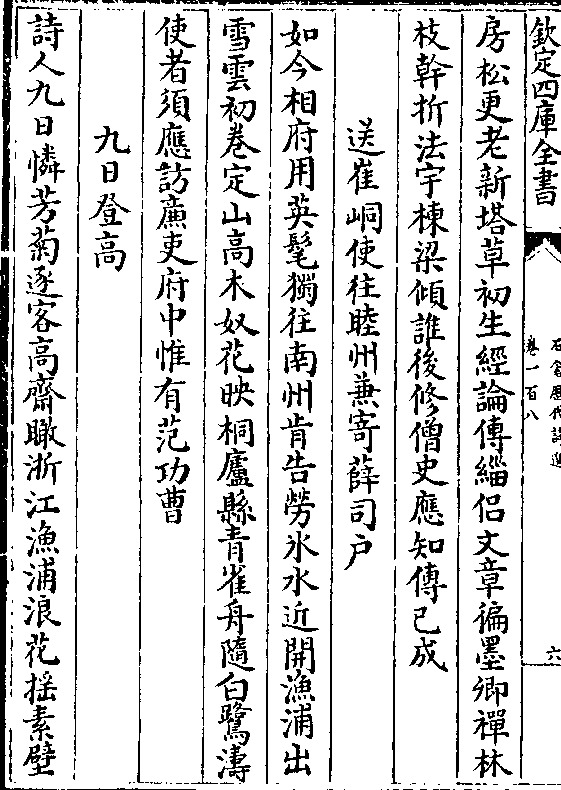 欽定四庫全書
石倉歷代詩選
卷一百八
六
房松更老新塔草初生經論傳緇侣文章徧墨卿禪林
枝幹折法宇棟梁傾誰後修僧史應知傳已成
送崔峒使往睦州兼寄薛司户
如今相府用英髦獨往南州肯告勞氷水近開漁浦出
雪雲初卷定山高木奴花映桐廬縣青雀舟隨白鷺濤
使者須應訪亷吏府中惟有范功曹
九日登高
詩人九日憐芳菊逐客高齋瞰浙江漁浦浪花摇素壁